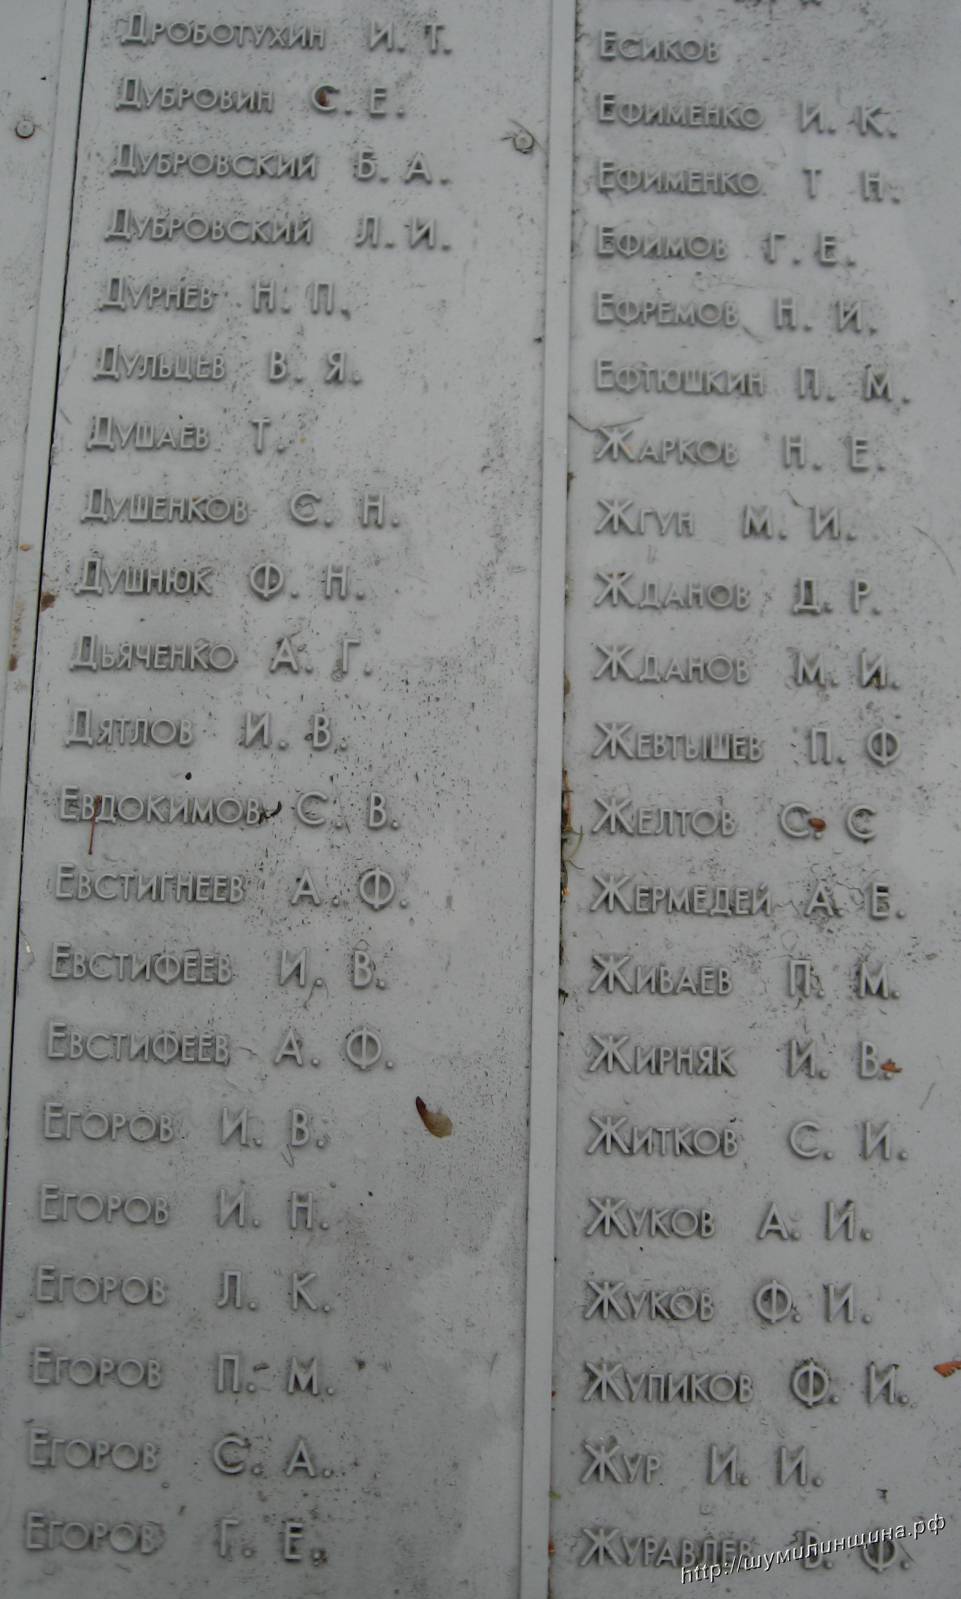 Дроботухин И. Т.
Дубровин С. Е.
Дубровский Б. А.
Дубровский Л. И.
Дурнев Н. П.
Дульцев В. Я.
Душаев Т.
Душенков С. Н.
Душнюк Ф. Н.
Дьяченко А. Г.
Дятлов И. В.
Евдокимов С. В.
Евстигнеев А. Ф.
Евстифеев И. В.
Евстифеев А. Ф.
Егоров И. В.
Егоров И. Н.
Егоров Л. К.
Егоров П. М.
Егоров С. А.
Егоров Г. Е.
Есиков
Ефименко И. К.
Ефименко Т Н.
Ефимов Г. Е.
Ефремов Н. И.
Ефтюшкин П. М.
Жарков Н. Е.
Жгун М. И.
Жданов Д. Р.
Жданов М. И.
Жевтышев П. Ф
Желтов С. С
Жермедей А. Е.
Живаев П. М.
Жирняк И. В.
Житков С. И.
Жуков А. И.
Жуков Ф. И.
Жупиков Ф. И.
Жур И. И.
Журавлев В. Ф.
http://шумилинщина.рф